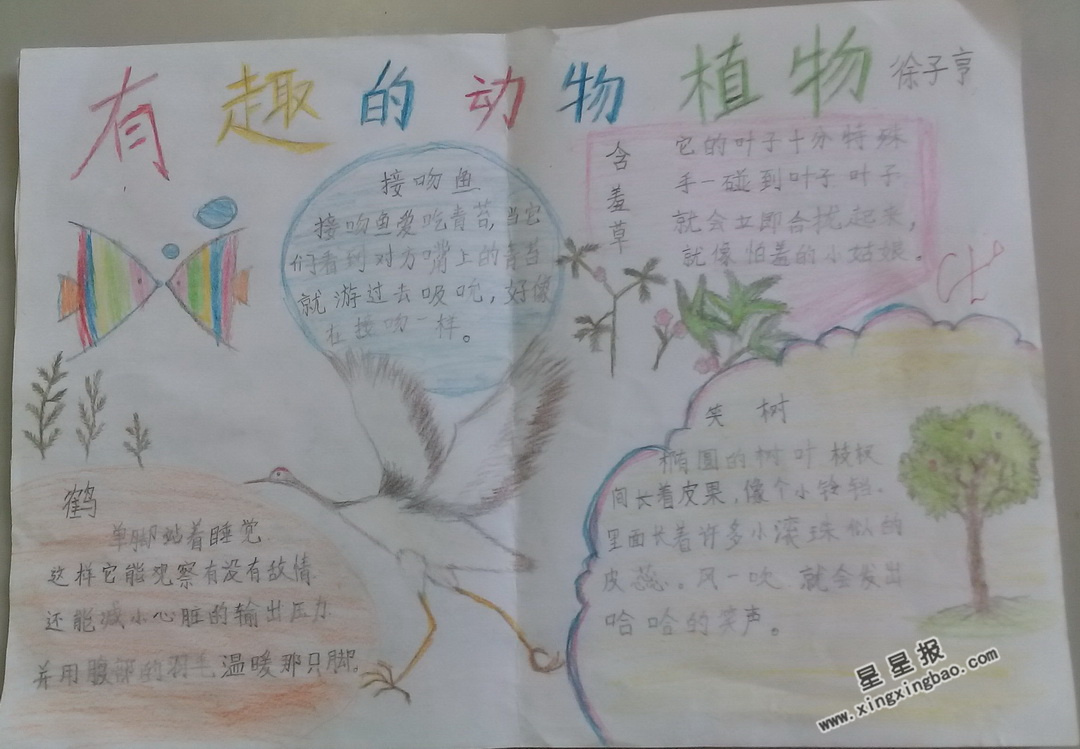 有趣的动物植物 徐子亨
接吻鱼
接吻鱼爱吃青苔,当它
们看到对方嘴上的青苔
就游过去吸吮,好像
在接吻一样。
含羞草
它的叶子十分特殊
手一碰到叶子叶子
就会立即合拢起来,
就像怕羞的小姑娘。
鹤
单脚站着睡觉
这样它能观察有没有敌情
还能减小心脏的输出压力
并用腹部的羽毛温暖那只脚.
笑树
椭圆的树叶枝杈
间长着皮果,像个小铃铛.
里面长着许多小滚珠似的
皮蕊。风一吹 就会发出
哈哈的笑声。
星星报
www.xingxingbao.com